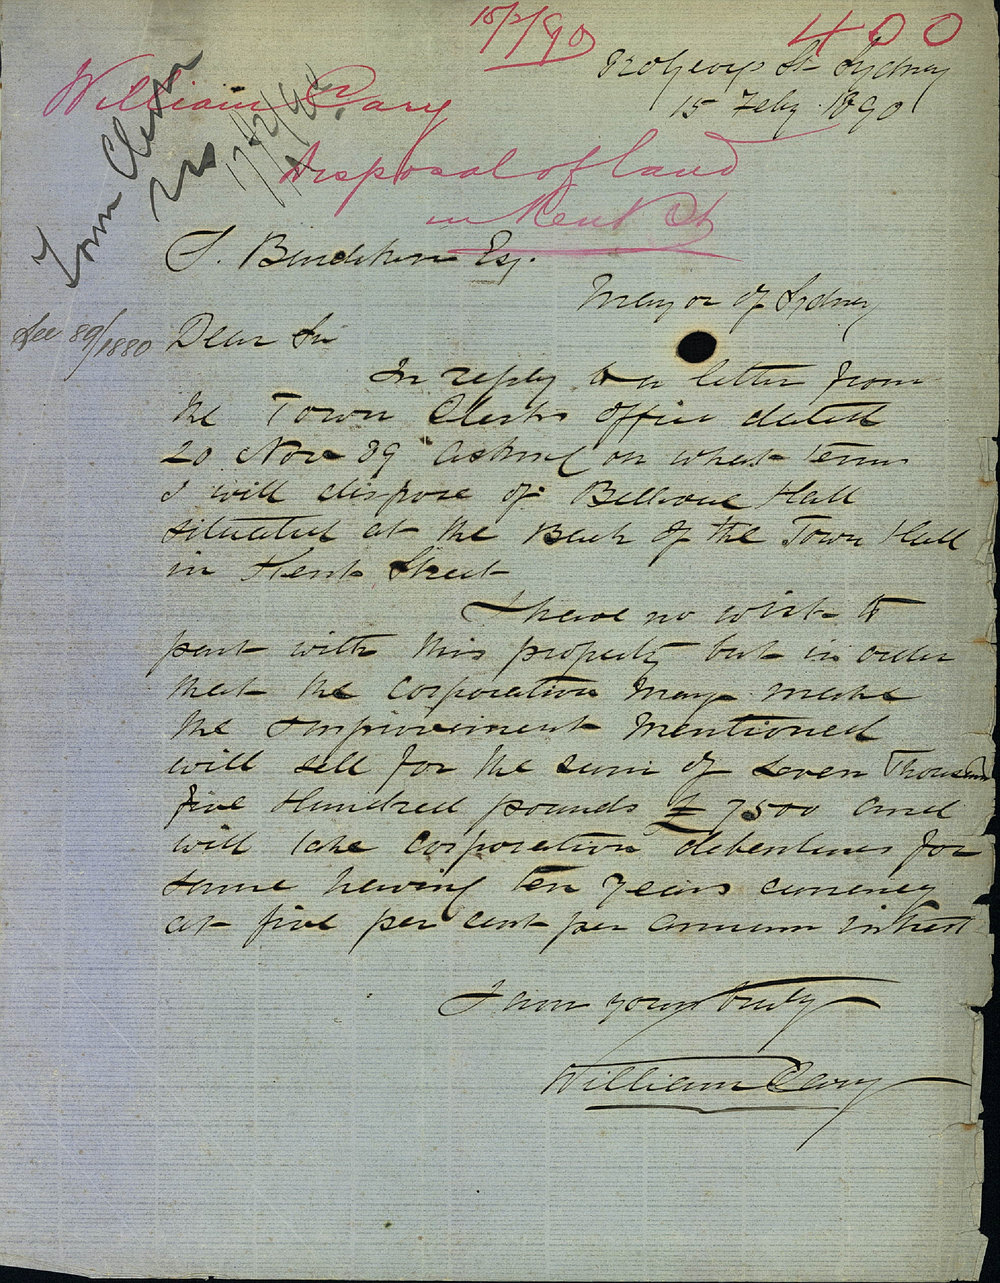 15/2/90
400
William Cary
720 George St Sydney
15 Feby 1890
Disposal of land
in Kent St
Town Clerk
17/2/90
S. Burdekin Esq.
Mayor of Sydney
See 89/1880
Dear Sir
In reply to a letter from
the Town Clerks office dated
20 Nov 89 asking on what terms
I will dispose of Bellevue Hall
situated at the Back of the Town Hall
in Kent Street
I have no wish to
part with this property but in order
that the Corporation may make
the improvement mentioned
will sell for the sum of seven Thousand
five Hundred pounds £7500 and
will take Corporation debentures for
same having ten years currency
at five per cent per annum interest
I am yours truly
William Cary